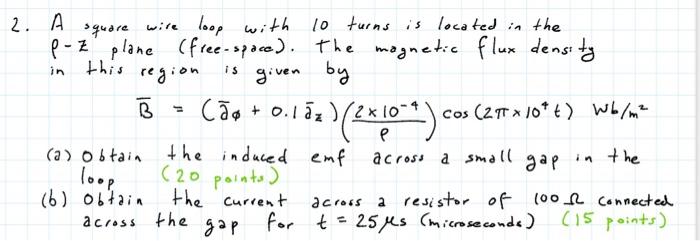 2. A square wire loop with 10 turns is located in the
ρ-z plane (free-space). The magnetic flux density
in this region is given by
B̄ = (āφ + 0.1 āz) (2 × 10⁻⁴ / ρ) cos (2π × 10⁴ t) Wb/m²
(a) Obtain the induced emf across a small gap in the
loop (20 points)
(b) Obtain the current across a resistor of 100 Ω connected
across the gap for t = 25 μs (microseconds) (15 points)